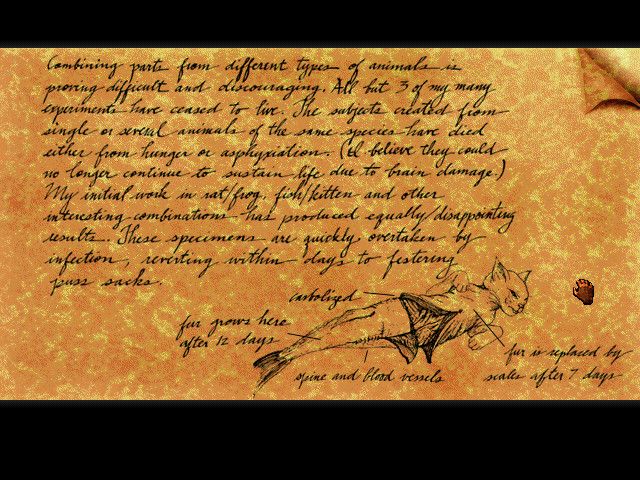 Combining parts from different types of animals is
proving difficult and discouraging. All but 3 of my many
experiments have ceased to live. The subjects created from
single or several animals of the same species have died
either from hunger or asphyxiation. (I believe they could
no longer continue to sustain life due to brain damage.)
My initial work in rat/frog, fish/kitten and other
interesting combinations has produced equally disappointing
results. These specimens are quickly overtaken by
infection, reverting within days to festering
puss sacks.
carbolized
fur grows here
after 12 days
spine and blood vessels
fur is replaced by
scales after 7 days